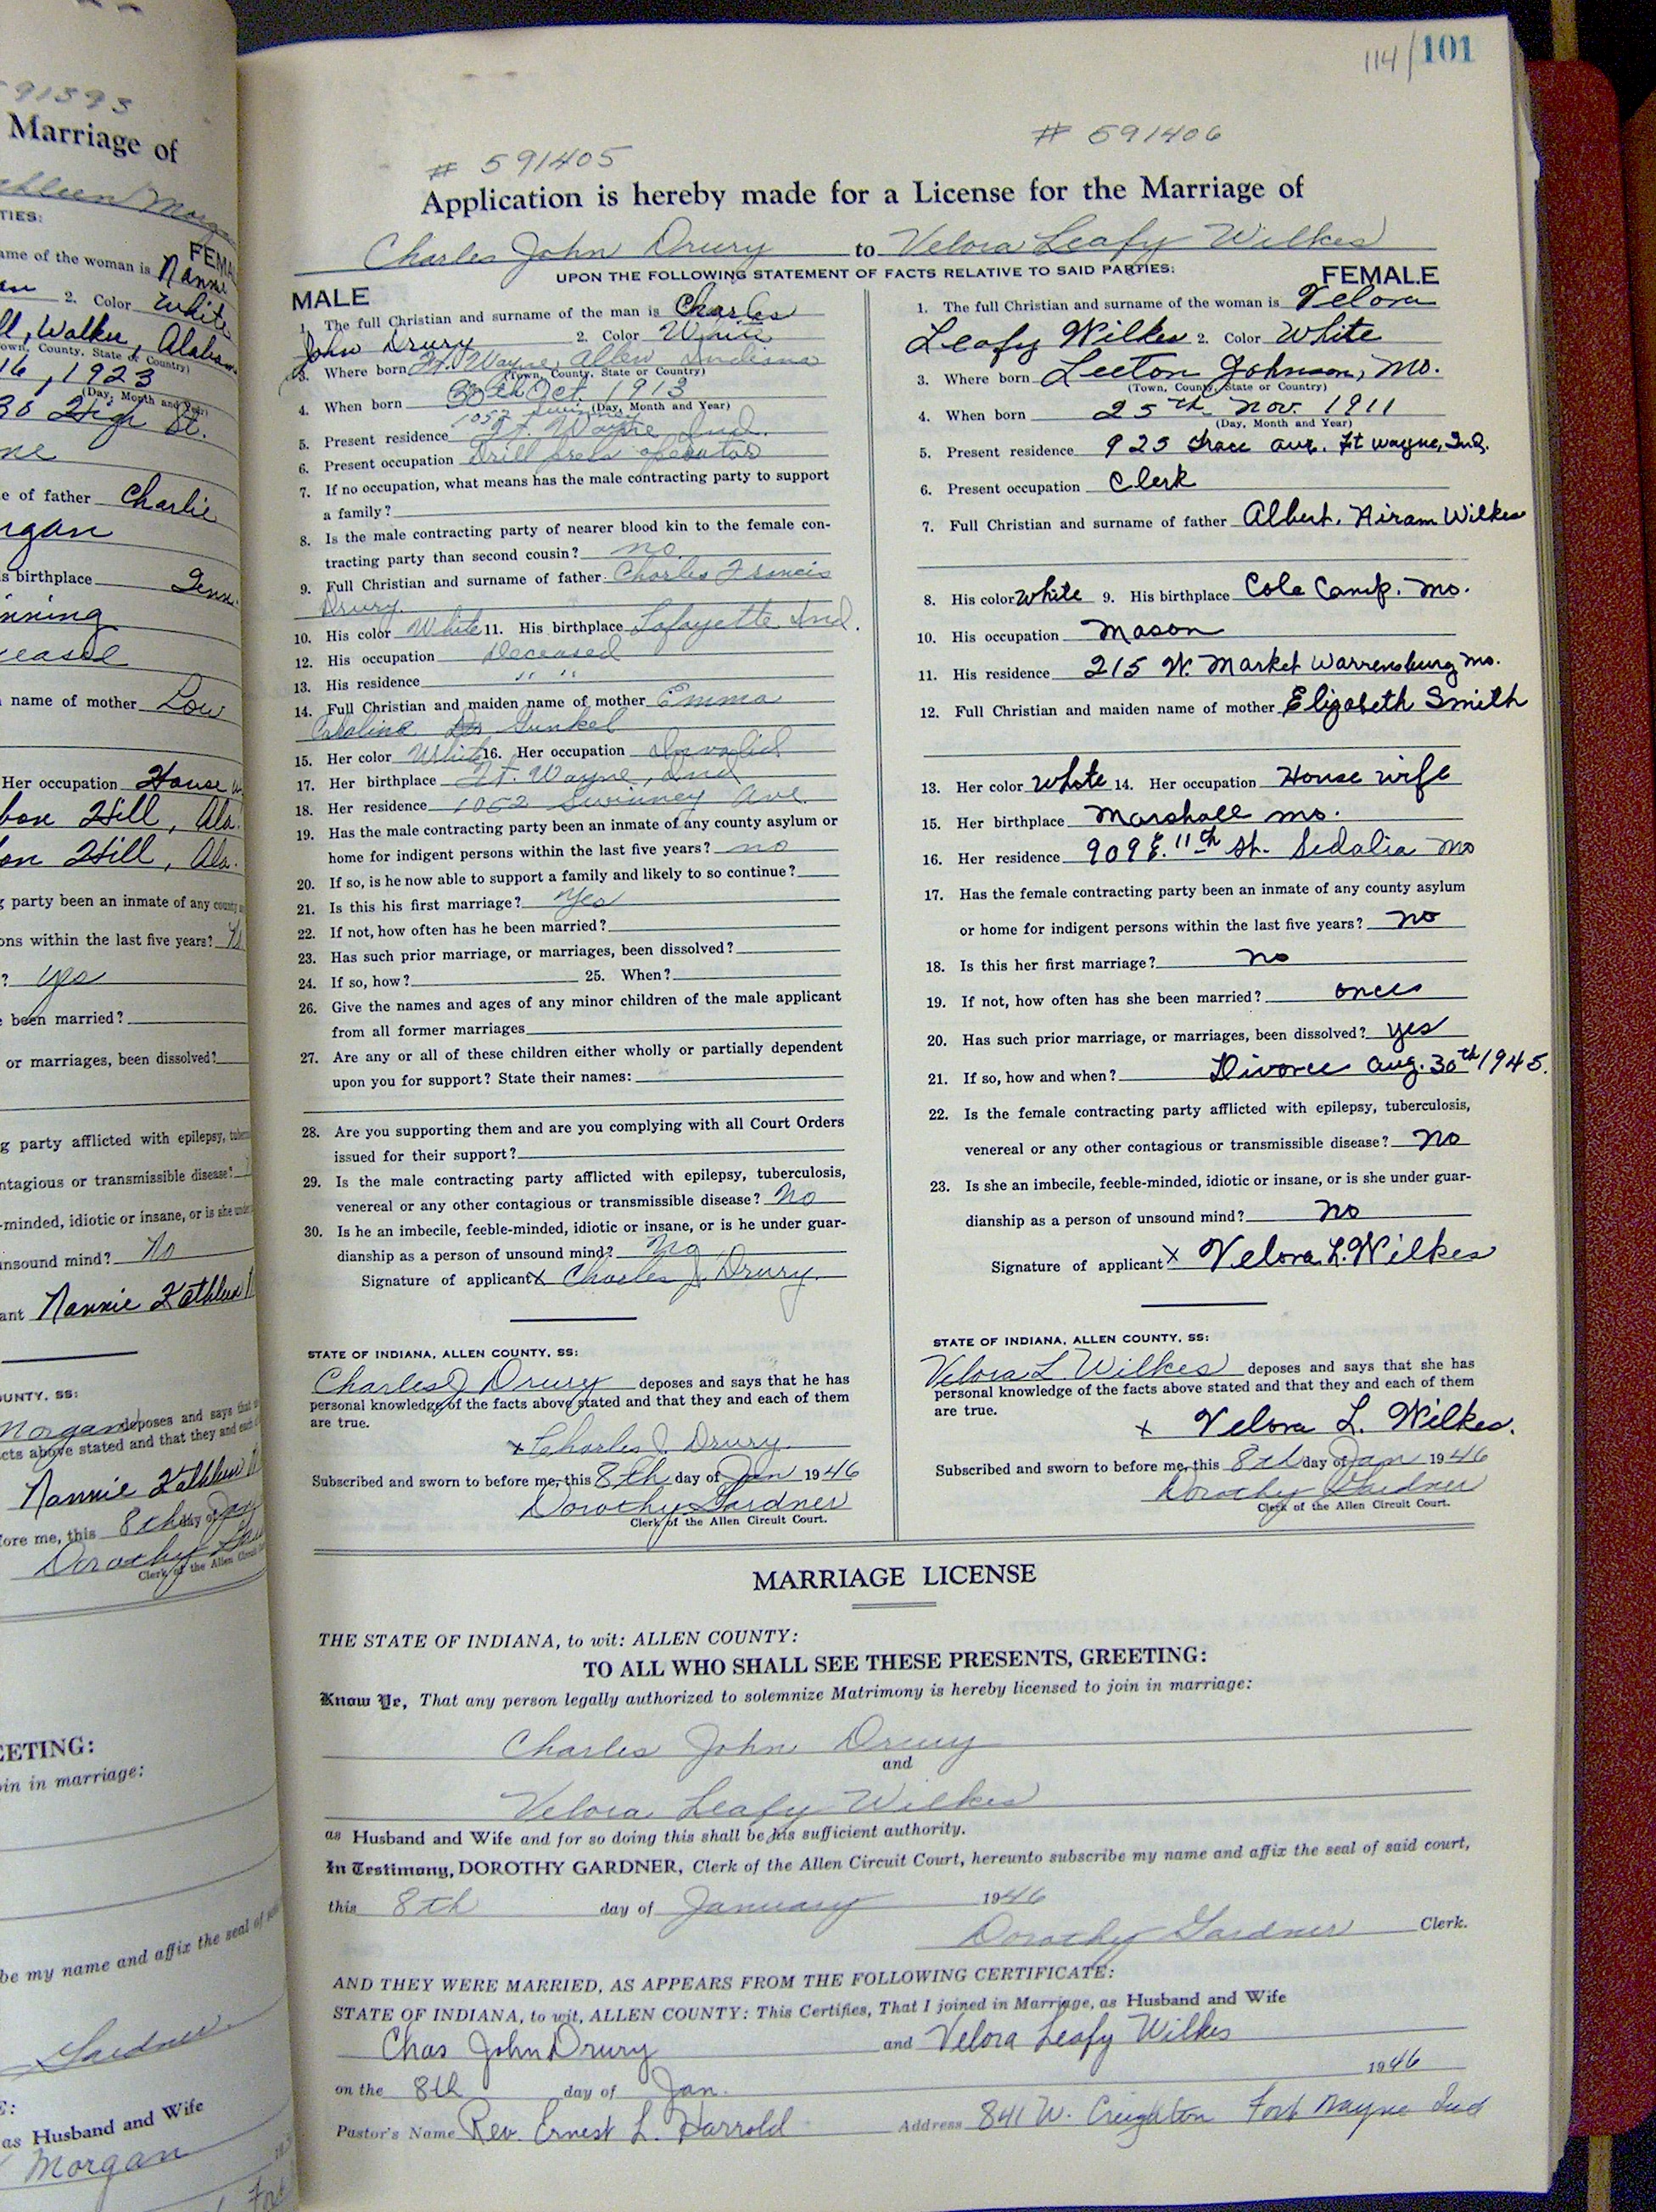 91393
Marriage of
TIES:
FEMA
ame of the woman is Nanni
2. Color White
ll, Walker, Alabam
own, County, State or Country)
16, 1923
(Day, Month and Year)
30 High St.
ne
e of father Charlie
rgan
s birthplace Tenn.
inning
ceased
name of mother Low
Her occupation House w
bon Hill, Ala.
on Hill, Ala.
g party been an inmate of any county
ons within the last five years? N
? yes
e been married?
or marriages, been dissolved?
g party afflicted with epilepsy, tuber
ntagious or transmissible disease?
-minded, idiotic or insane, or is she under
nsound mind? No
ant Nannie Kathleen M
OUNTY, SS:
Morgan deposes and says that
cts above stated and that they and each
Nannie Kathleen M
ore me, this 8th day of Jan
Dorothy Gar
Clerk of the Allen Circuit
EETING:
oin in marriage:
be my name and affix the seal of
Gardner
E:
as Husband and Wife
Morgan
Fort
114/101
# 591405
# 591406
Application is hereby made for a License for the Marriage of
Charles John Drury to Velora Leafy Wilkes
UPON THE FOLLOWING STATEMENT OF FACTS RELATIVE TO SAID PARTIES:
MALE
1. The full Christian and surname of the man is Charles
John Drury 2. Color White
3. Where born Ft. Wayne, Allen Indiana
(Town, County, State or Country)
4. When born 30th Oct. 1913
(Day, Month and Year)
1052 Swinney
5. Present residence Ft. Wayne Ind.
6. Present occupation Drill press operator
7. If no occupation, what means has the male contracting party to support
a family?
8. Is the male contracting party of nearer blood kin to the female con-
tracting party than second cousin? no
9. Full Christian and surname of father Charles Francis
Drury
10. His color White 11. His birthplace Lafayette Ind.
12. His occupation Deceased
13. His residence " " " "
14. Full Christian and maiden name of mother Emma
Caroline Gunkel
15. Her color White 16. Her occupation Invalid
17. Her birthplace Ft. Wayne, Ind
18. Her residence 1052 Swinney Ave
19. Has the male contracting party been an inmate of any county asylum or
home for indigent persons within the last five years? no
20. If so, is he now able to support a family and likely to so continue?
21. Is this his first marriage? Yes
22. If not, how often has he been married?
23. Has such prior marriage, or marriages, been dissolved?
24. If so, how? 25. When?
26. Give the names and ages of any minor children of the male applicant
from all former marriages
27. Are any or all of these children either wholly or partially dependent
upon you for support? State their names:
28. Are you supporting them and are you complying with all Court Orders
issued for their support?
29. Is the male contracting party afflicted with epilepsy, tuberculosis,
venereal or any other contagious or transmissible disease? No
30. Is he an imbecile, feeble-minded, idiotic or insane, or is he under guar-
dianship as a person of unsound mind? No
Signature of applicant x Charles J. Drury.
STATE OF INDIANA, ALLEN COUNTY, SS:
Charles J Drury deposes and says that he has
personal knowledge of the facts above stated and that they and each of them
are true.
x Charles J. Drury.
Subscribed and sworn to before me, this 8th day of Jan 1946
Dorothy Gardner
Clerk of the Allen Circuit Court.
FEMALE
1. The full Christian and surname of the woman is Velora
Leafy Wilkes 2. Color White
3. Where born Leeton Johnson, Mo.
(Town, County, State or Country)
4. When born 25th Nov. 1911
(Day, Month and Year)
5. Present residence 923 Grace ave. Ft Wayne, Ind.
6. Present occupation Clerk
7. Full Christian and surname of father Albert Hiram Wilkes
8. His color White 9. His birthplace Cole Camp. Mo.
10. His occupation Mason
11. His residence 215 W. Market Warrensburg Mo.
12. Full Christian and maiden name of mother Elizabeth Smith
13. Her color White 14. Her occupation House wife
15. Her birthplace Marshall Mo.
16. Her residence 909 E. 11th St. Sedalia Mo
17. Has the female contracting party been an inmate of any county asylum
or home for indigent persons within the last five years? no
18. Is this her first marriage? no
19. If not, how often has she been married? once
20. Has such prior marriage, or marriages, been dissolved? yes
21. If so, how and when? Divorce Aug. 30th 1945.
22. Is the female contracting party afflicted with epilepsy, tuberculosis,
venereal or any other contagious or transmissible disease? no
23. Is she an imbecile, feeble-minded, idiotic or insane, or is she under guar-
dianship as a person of unsound mind? no
Signature of applicant x Velora L. Wilkes
STATE OF INDIANA, ALLEN COUNTY, SS:
Velora L Wilkes deposes and says that she has
personal knowledge of the facts above stated and that they and each of them
are true.
x Velora L. Wilkes.
Subscribed and sworn to before me, this 8th day of Jan 1946
Dorothy Gardner
Clerk of the Allen Circuit Court.
MARRIAGE LICENSE
THE STATE OF INDIANA, to wit: ALLEN COUNTY:
TO ALL WHO SHALL SEE THESE PRESENTS, GREETING:
Know Ye, That any person legally authorized to solemnize Matrimony is hereby licensed to join in marriage:
Charles John Drury
and
Velora Leafy Wilkes
as Husband and Wife and for so doing this shall be his sufficient authority.
In Testimony, DOROTHY GARDNER, Clerk of the Allen Circuit Court, hereunto subscribe my name and affix the seal of said court,
this 8th day of January 1946
Dorothy Gardner Clerk.
AND THEY WERE MARRIED, AS APPEARS FROM THE FOLLOWING CERTIFICATE:
STATE OF INDIANA, to wit, ALLEN COUNTY: This Certifies, That I joined in Marriage, as Husband and Wife
Chas John Drury and Velora Leafy Wilkes
on the 8th day of Jan. 1946
Pastor's Name Rev. Ernest L. Harrold Address 841 W. Creighton Fort Wayne Ind